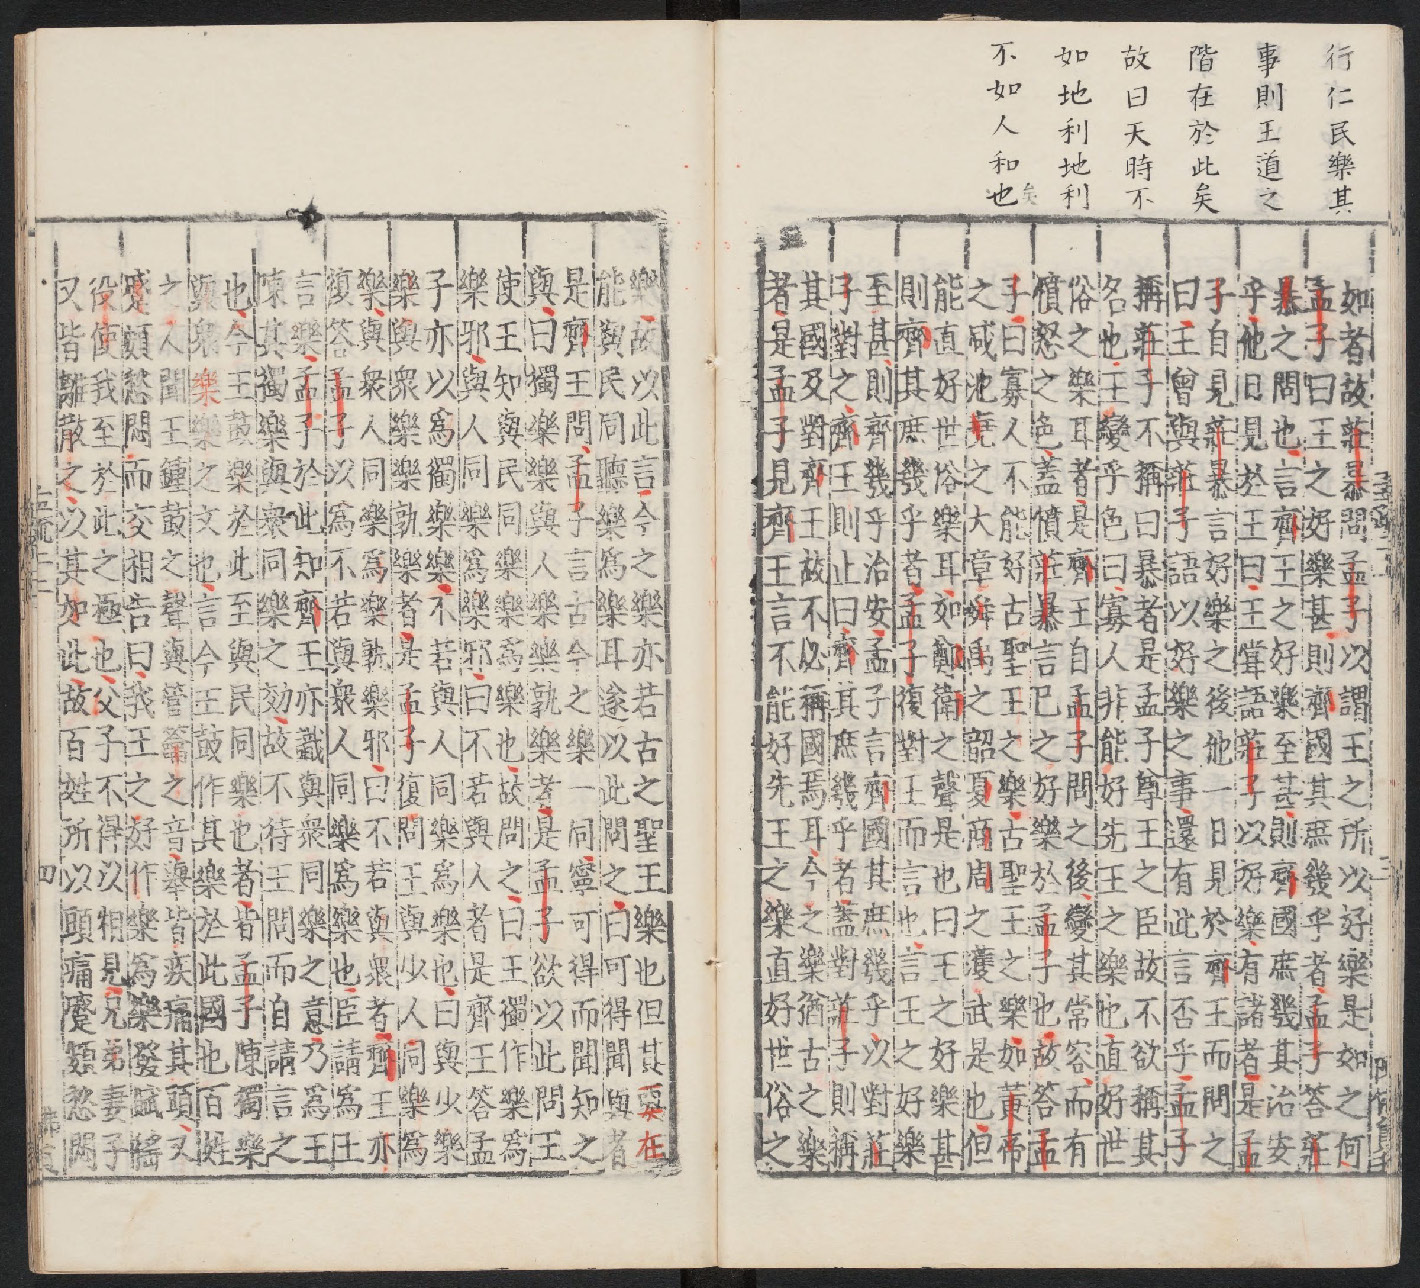 行仁民樂其
事則王道之
階在於此矣
故曰天時不
如地利地利
不如人和也
矣
如者故莊暴問孟子以謂王之所以好樂是如之何
孟子曰王之好樂甚則齊國其庶幾乎者孟子答莊
暴之問也言齊王之好樂至甚則齊國庶幾其治安
乎他日見於王曰王嘗語莊子以好樂有諸者是孟
子自見莊暴言好樂之後他一日見於齊王而問之
曰王曾與莊子語以好樂之事還有此言否乎孟子
稱莊子不稱曰暴者是孟子尊王之臣故不欲稱其
名也王變乎色曰寡人非能好先王之樂也直好世
俗之樂耳者是齊王自孟子問之後變其常容而有
憤怒之色蓋憤莊暴言已之好樂於孟子也故答孟
子曰寡人不能好古聖王之樂古聖王之樂如黃帝
之咸池堯之大章舜禹之韶夏商周之濩武是也但
能直好世俗樂耳如鄭衛之聲是也曰王之好樂甚
則齊其庶幾乎者孟子復對王而言也言王之好樂
至甚則齊幾乎治安孟子言齊國其庶幾乎以對莊
子對之齊王則止曰齊其庶幾乎者蓋對莊子則稱
其國及對齊王故不必稱國焉耳今之樂猶古之樂
者是孟子見齊王言不能好先王之樂直好世俗之
樂故以此言今之樂亦若古之聖王樂也但其要在
能與民同聽樂爲樂耳遂以此問之曰可得聞與者
是齊王問孟子言古今之樂一同寧可得而聞知之
與曰獨樂樂與人樂樂孰樂者是孟子欲以此問王
使王知與民同樂樂爲樂也故問之曰王獨作樂爲
樂邪與人同樂爲樂邪曰不若與人者是齊王答孟
子亦以爲獨樂樂不若與人同樂爲樂也曰與少樂
樂與衆樂樂孰樂者是孟子復問王與少人同樂爲
樂與衆人同樂爲樂孰樂邪曰不若與衆者齊王亦
復答孟子以爲不若與衆人同樂爲樂也臣請爲王
言樂孟子於此知齊王亦識與衆同樂之意乃爲王
陳其獨樂與衆同樂之効故不待王問而自請言之
也今王鼓樂於此至與民同樂也者皆孟子陳獨樂
與衆樂樂之文也言今王鼓作其樂於此國也百姓
之人聞王鍾鼓之聲與管籥之音舉皆疾痛其頭又
蹙頞愁悶而交相告曰我王之好作樂爲樂發賦徭
役使我至於此之極也父子不得以相見兄弟妻子
又皆離散之以其如此故百姓所以頭痛蹙頞愁悶
三
四